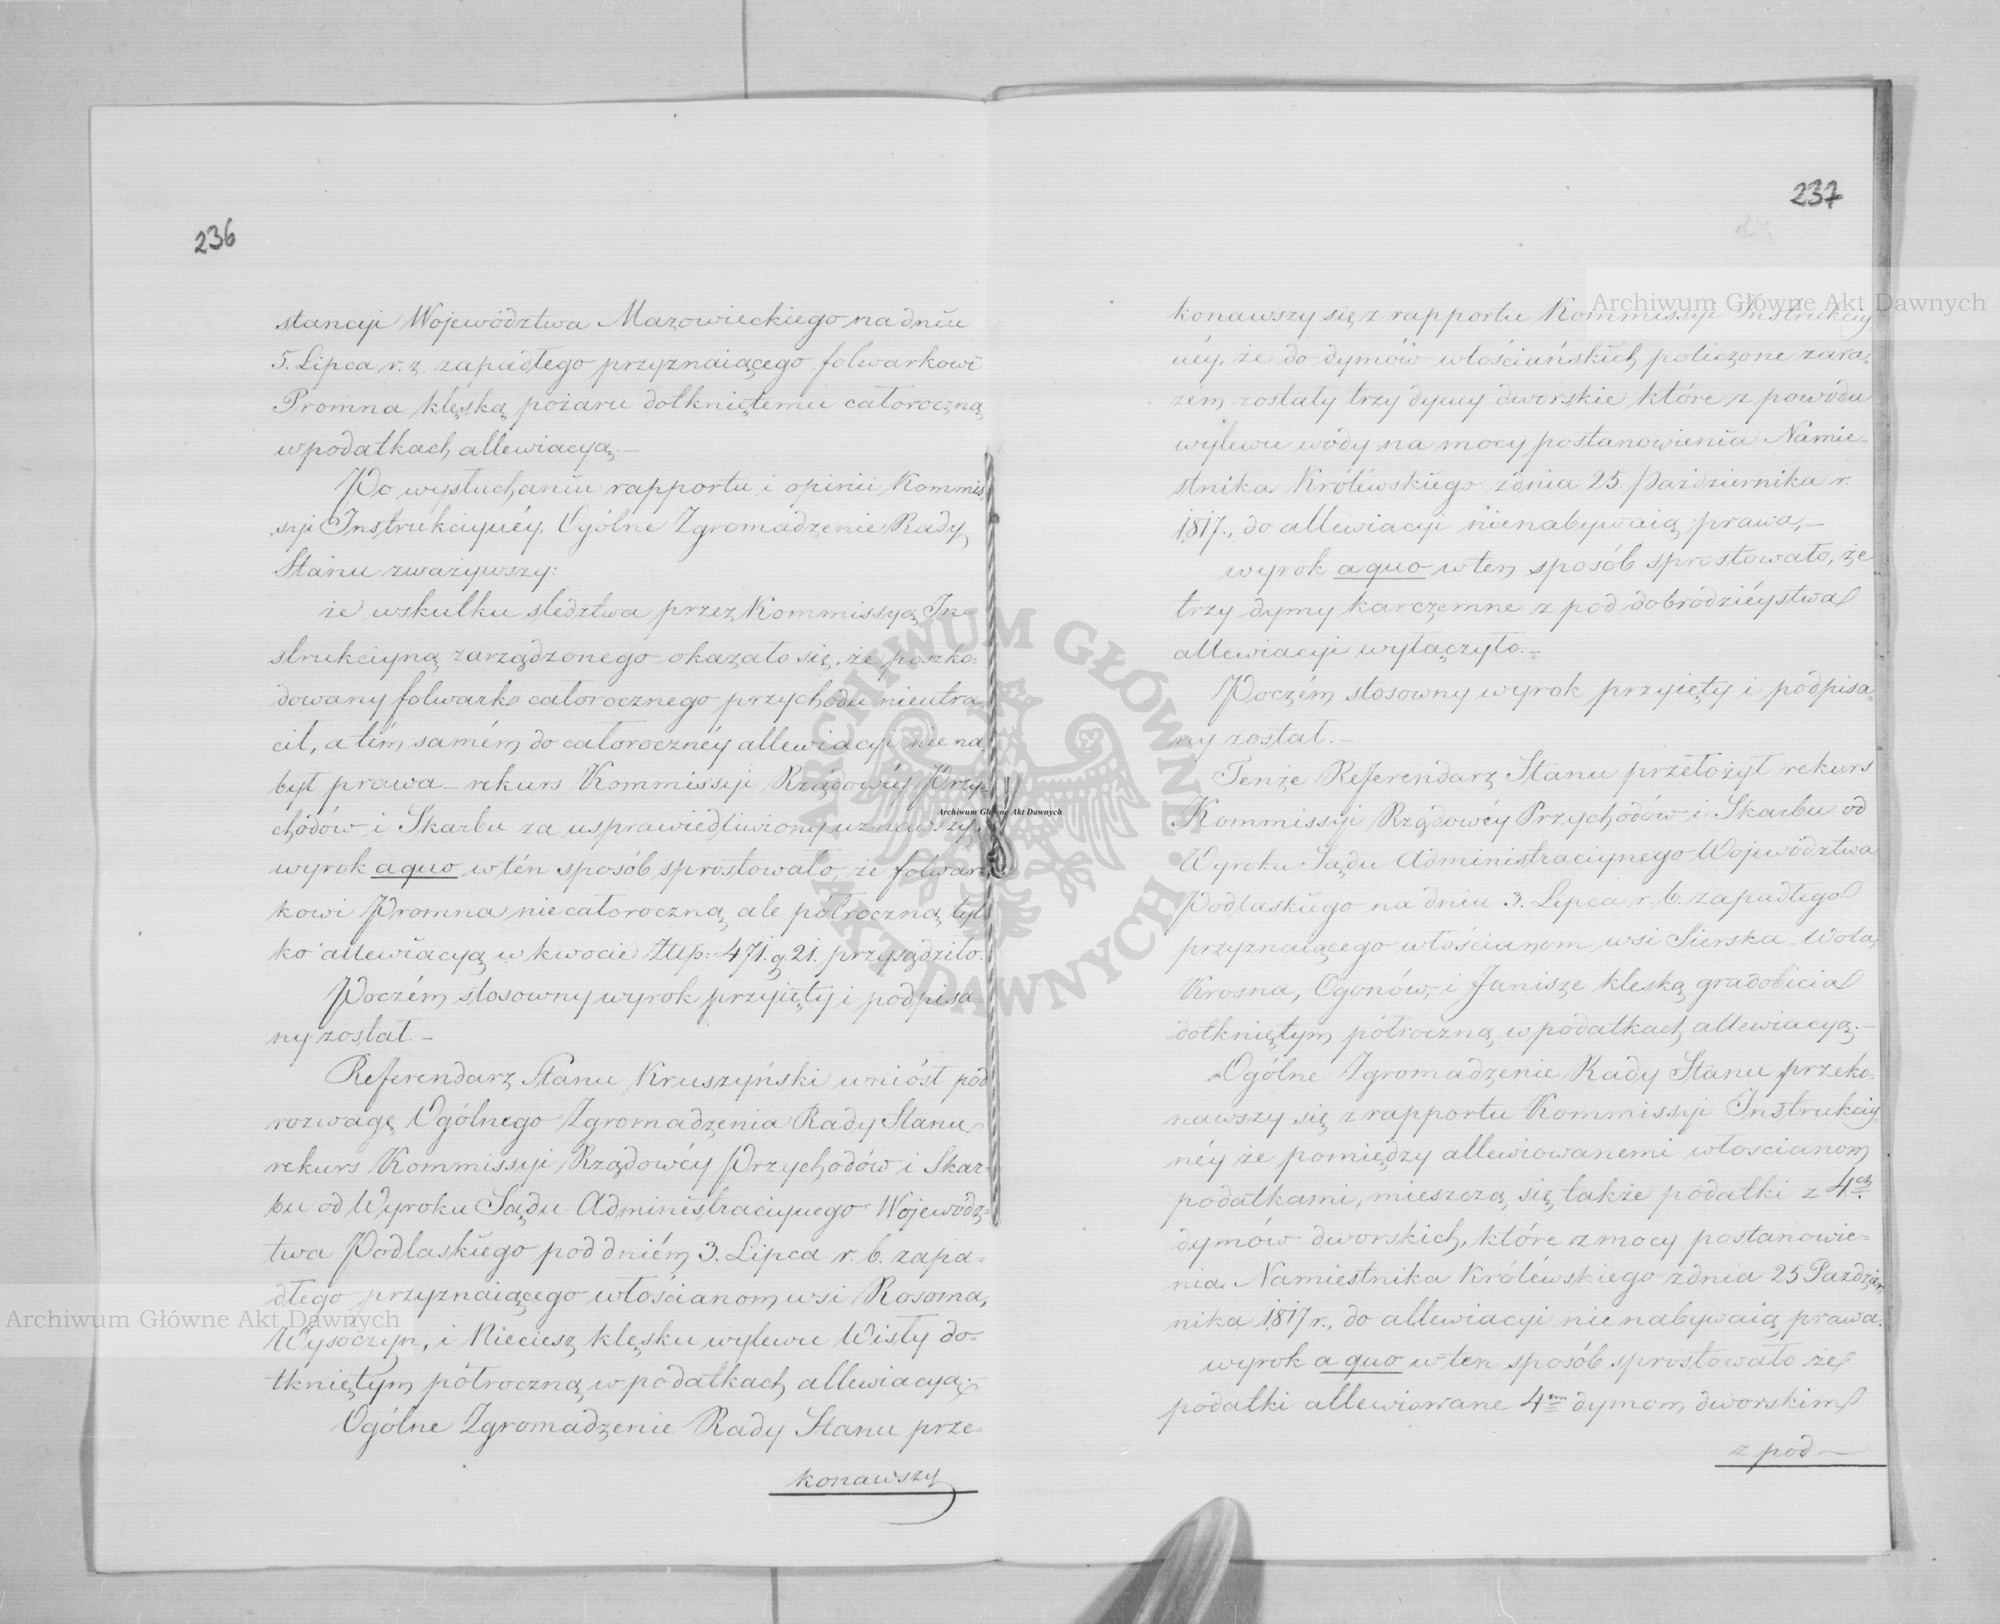 236
stancyi Województwa Mazowieckiego na dniu
5. Lipca r. z. zapadłego przyznaiącego folwarkowi
Promna klęską pożaru dotkniętemu całoroczną
w podatkach allewiacyą.—
Po wysłuchaniu rapportu i opinii Kommis-
syi Instrukcyinéy. Ogólne Zgromadzenie Rady
Stanu zważywszy:
że wskutku sledztwa przez Kommissyą In-
strukcyiną zarządzonego okazało się, że poszko-
dowany folwark całorocznego przychodu nieutra-
cił, a tém samém do całorocznéy allewiacyi nie na-
był prawa — rekurs Kommissyi Rządowéy Przy-
chodów i Skarbu za usprawiedliwiony uznawszy,
wyrok a quo w tén sposób sprostowało, że folwar-
kowi Promna nie całoroczną ale półroczną tyl-
ko allewiacyą w kwocie Złlp: 471. g. 21. przysądziło.
Poczém stosowny wyrok przyięty i podpisa-
ny został.—
Referendarz Stanu Kruszyński wniósł pod
rozwagę Ogólnego Zgromadzenia Rady Stanu
rekurs Kommissyi Rządowéy Przychodów i Skar-
bu od Wyroku Sądu Administracyinego Wojewódz-
twa Podlaskiego pod dniém 3. Lipca r. b. zapa-
dłego przyznaiącego włościanom wsi Rososna,
Wysoczyn, i Nieciesz klęsku wylewu Wisły do-
tkniętym półroczną w podatkach allewiacyą.
Ogólne Zgromadzenie Rady Stanu prze-
konawszy
237
konawszy się z rapportu Kommissyi Instrukcyi-
néy, że do dymów włościańskich policzone zara-
zem zostały trzy dymy dworskie które z powodu
wylewu wody na mocy postanowienia Namie-
stnika Królewskiego z dnia 25. Października r.
1817., do allewiacyi nienabywaią prawa,—
wyrok a quo w ten sposób sprostowało, że
trzy dymy karczemne z pod dobrodziéystwa
allewiacyi wyłączyło.—
Poczém stosowny wyrok przyięty i podpisa-
ny został.—
Tenże Referendarz Stanu przełożył rekurs
Kommissyi Rządowéy Przychodów i Skarbu od
Wyroku Sądu Administracyinego Województwa
Podlaskiego na dniu 3. Lipca r. b. zapadłego
przyznaiącego włościanom wsi Sierska Wola,
Krosna, Ogonów, i Janisze kleską gradobicia
dotkniętym półroczną w podatkach allewiacyą.—
Ogólne Zgromadzenie Rady Stanu przeko-
nawszy się z rapportu Kommissyi Instrukcyi-
néy że pomiędzy allewiowanemi włoscianom
podatkami, mieszczą się także podatki z 4ch
dymów dworskich, które z mocy postanowie-
nia Namiestnika Królewskiego z dnia 25 Paździer-
nika 1817 r., do allewiacyi nie nabywaią prawa.
wyrok a quo w ten sposób sprostowało że
podatki allewiowane 4em dymom dworskim
z pod—
Archiwum Główne Akt Dawnych
Archiwum Główne Akt Dawnych
Archiwum Główne Akt Dawnych
ARCHIWUM GŁÓWNE AKT DAWNYCH